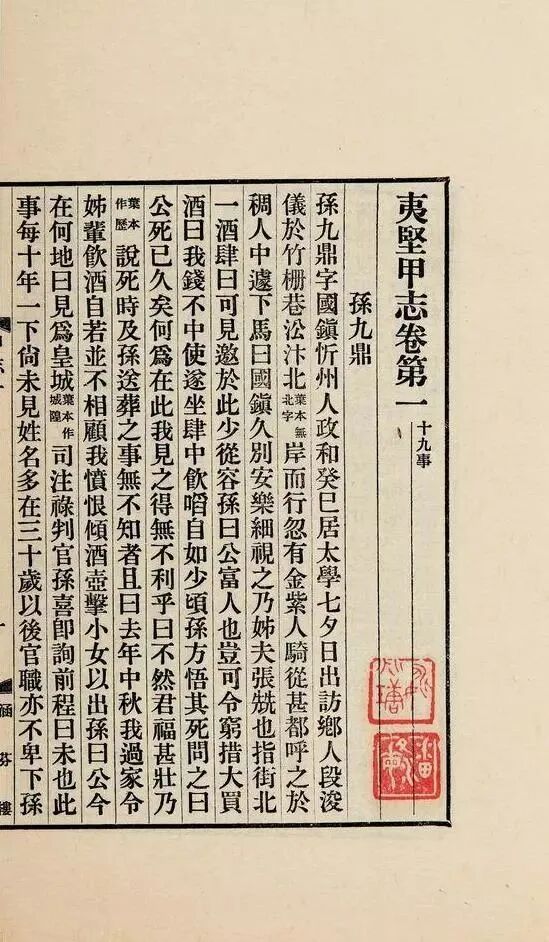 夷堅甲志卷第一 十九事
孫九鼎
孫九鼎字國鎮忻州人政和癸巳居太學七夕日出訪鄉人段浚
儀於竹柵巷㳂汴北葉本無北字岸而行忽有金紫人騎從甚都呼之於
稠人中遽下馬曰國鎮久別安樂細視之乃姊夫張兟也指街北
一酒肆曰可見邀於此少從容孫曰公富人也豈可令窮措大買
酒曰我錢不中使遂坐肆中飲啗自如少頃孫方悟其死問之曰
公死已久矣何爲在此我見之得無不利乎曰不然君福甚壯乃
葉本作歷說死時及孫送葬之事無不知者且曰去年中秋我過家令
姊輩飲酒自若並不相顧我憤恨傾酒壺擊小女以出孫曰公今
在何地曰見爲皇城葉本作城隍司注祿判官孫喜卽詢前程曰未也此
事每十年一下尙未見姓名多在三十歲以後官職亦不卑下孫
一
涵芬樓